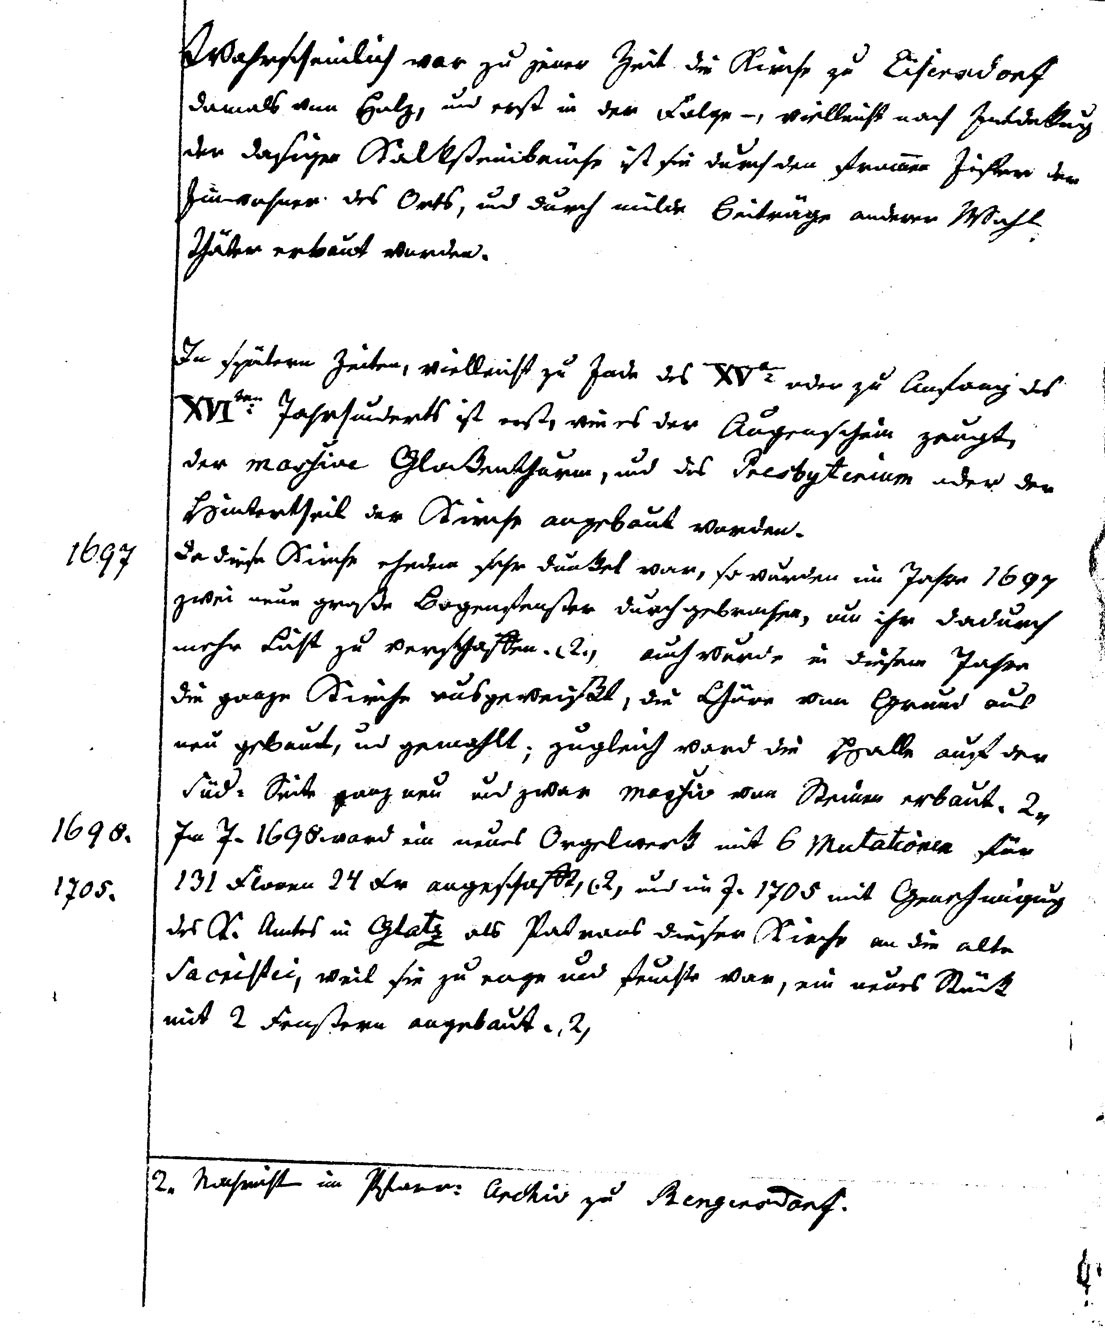 Wahrscheinlich war zu jener Zeit die Kirche zu Eisersdorf
damals von Holz, und erst in der Folge, vielleicht nach Entdekkung
der dasigen Kalksteinbrüche ist sie durch den frommen Eifer der
Einwohner des Orts, und durch milde Beiträge anderer Wohl
thäter erbaut worden.
In spätern Zeiten, vielleicht zu Ende des XV oder zu Anfang des
XVI ten Jahrhunderts ist erst, wie es der Augenschein zeugt,
der massive Glokkenthurm, und das Presbyterium oder der
Hintertheil der Kirche angebaut worden.
1697 Da diese Kirche ehedem sehr dunkel war, so wurden im Jahre 1697
zwei neue große Bogenfenster durchgebrochen, um ihr dadurch
mehr Licht zu verschaffen. (2., auch wurde in diesem Jahre
die ganze Kirche ausgeweißt, die Chöre von Grund aus
neu gebaut, und gemahlt; zugleich ward die Halle auf der
Süd: Seite ganz neu und zwar massiv von Steinen erbaut. 2,,
1698. Im J. 1698 ward ein neues Orgelwerk mit 6 Mutationen für
1705. 131 Floren 24 Kr angeschafft, (2, und im J. 1705 mit Genehmigung
des K. Amtes in Glatz als Patrons dieser Kirche an die alte
Sacristei, weil sie zu enge und feucht war, ein neues Stück
mit 2 Fenstern angebaut. (2,
2. Nachricht im Pfarr: Archiv zu Rengersdorf.